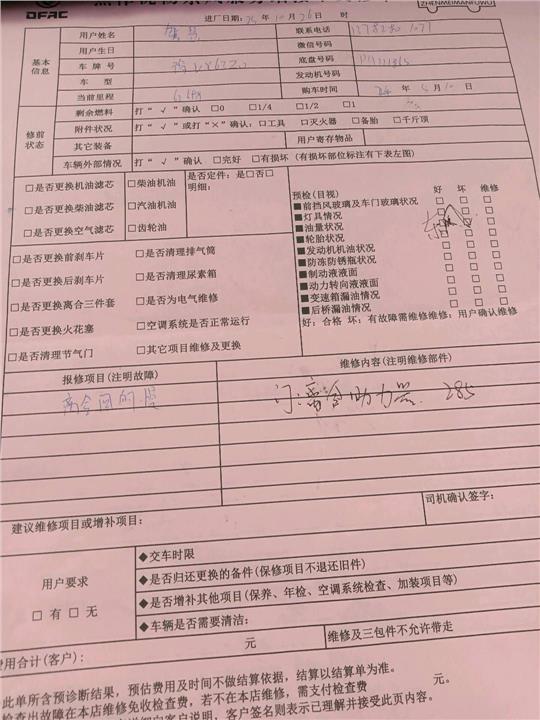 DFAC
ZHENMEIMANFUWU
进厂日期: 25年 10月 26日 时
基本信息
用户姓名
联系电话
用户生日
微信号码
车牌号
底盘号码
车型
发动机号码
当前里程
购车时间 年 5月 10日
修前状态
剩余燃料 打“√”确认 □0 □1/4 □1/2 □1
附件状况 打“√”或打“×”确认:□工具 □灭火器 □备胎 □千斤顶
其它装备 用户寄存物品
车辆外部情况 打“√”确认 □完好 □有损坏(有损坏部位标注有下表左图)
□是否更换机油滤芯 □柴油机油 是否定件:是□否□
明细:
□是否更换柴油滤芯 □汽油机油
□是否更换空气滤芯 □齿轮油
预检(目视) 好 坏 维修
■前挡风玻璃及车门玻璃状况 □ □ □
■灯具情况 □ □ □
■油量状况 □ □ □
■轮胎状况 □ □ □
■发动机机油状况 □ □ □
■防冻防锈瓶状况 □ □ □
■制动液液面 □ □ □
■动力转向液液面 □ □ □
■变速箱漏油情况 □ □ □
■后桥漏油情况 □ □ □
好:合格 坏:有故障需维修维修:用户确认维修
□是否更换前刹车片 □是否清理排气筒
□是否更换后刹车片 □是否清理尿素箱
□是否更换离合三件套 □是否为电气维修
□是否更换火花塞 □空调系统是否正常运行
□是否清理节气门 □其它项目维修及更换
报修项目(注明故障) 维修内容(注明维修部件)
离合 离合助力器 285
建议维修项目或增补项目: 司机确认签字:
用户要求
□有 □无
◆交车时限
◆是否归还更换的备件(保修项目不退还旧件)
◆是否增补其他项目(保养、年检、空调系统检查、加装项目等)
◆车辆是否需要清洁:
费用合计(客户): 元 维修及三包件不允许带走
此单所含预诊断结果,预估费用及时间不做结算依据,结算以结算单为准。
检查出故障在本店维修免收检查费,若不在本店维修,需支付检查费 元。
客户说明,客户签名则表示已理解并接受此页内容。